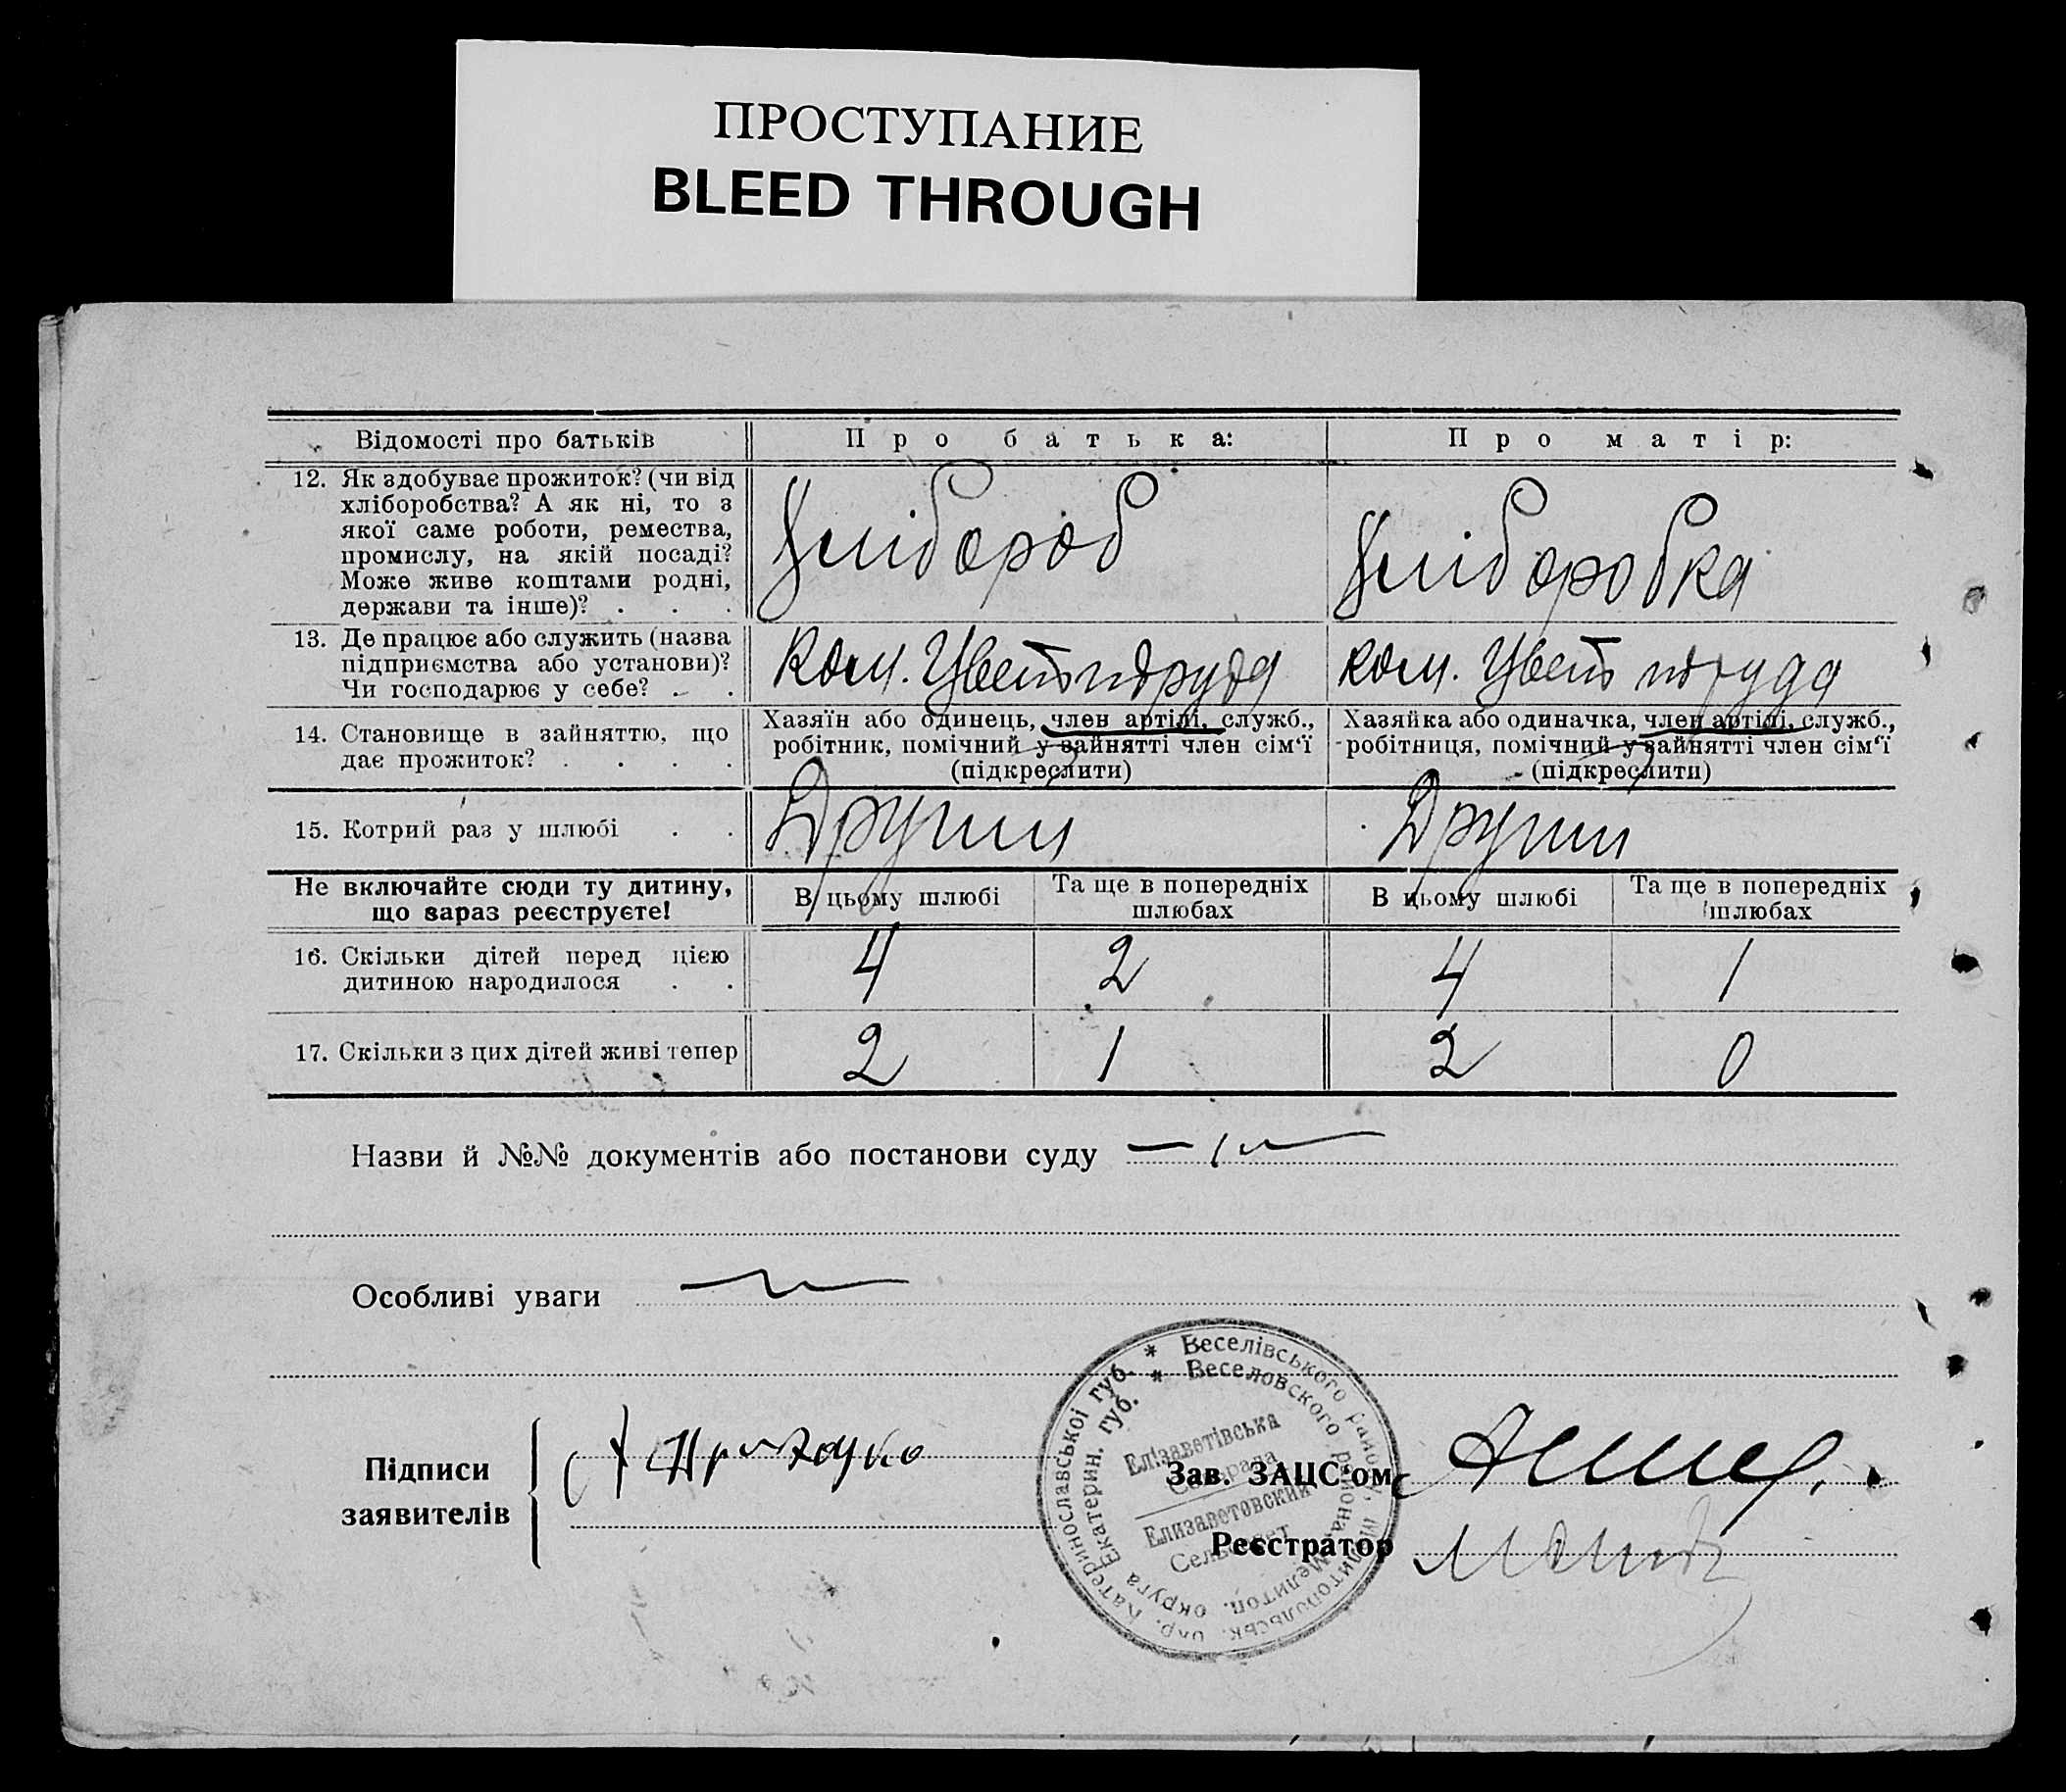 ПРОСТУПАНИЕ
BLEED THROUGH
Відомості про батьків
Про батька:
Про матір:
12. Як здобуває прожиток? (чи від
хліборобства? А як ні, то з
якої саме роботи, ремества,
промислу, на якій посаді?
Може живе коштами родні,
держави та інше)? . . .
Хлібороб
Хліборобка
13. Де працює або служить (назва
підприємства або установи)?
Чи господарює у себе? . .
Ком. Цвет труда
Ком. Цвет труда
14. Становище в зайняттю, що
дає прожиток? . . . .
Хазяїн або одинець, член артілі, служб.,
робітник, помічний у зайнятті член сім'ї
(підкреслити)
Хазяйка або одиначка, член артілі, служб.,
робітниця, помічний у зайнятті член сім'ї
(підкреслити)
15. Котрий раз у шлюбі . .
Другий
Другий
Не включайте сюди ту дитину,
що зараз реєструєте!
В цьому шлюбі
Та ще в попередніх
шлюбах
В цьому шлюбі
Та ще в попередніх
шлюбах
16. Скільки дітей перед цією
дитиною народилося . .
4
2
4
1
17. Скільки з цих дітей живі тепер
2
1
2
0
Назви й №№ документів або постанови суду
Особливі уваги
Підписи
заявителів
Зав. ЗАЦС'ом
Реєстратор
* Веселівського району, Мелітопольськ. окр. Катеринославської губ.
* Веселовского района, Мелитоп. округа Екатерин. губ.
Елізаветівська
Сільрада
Елизаветовский
Сельсовет